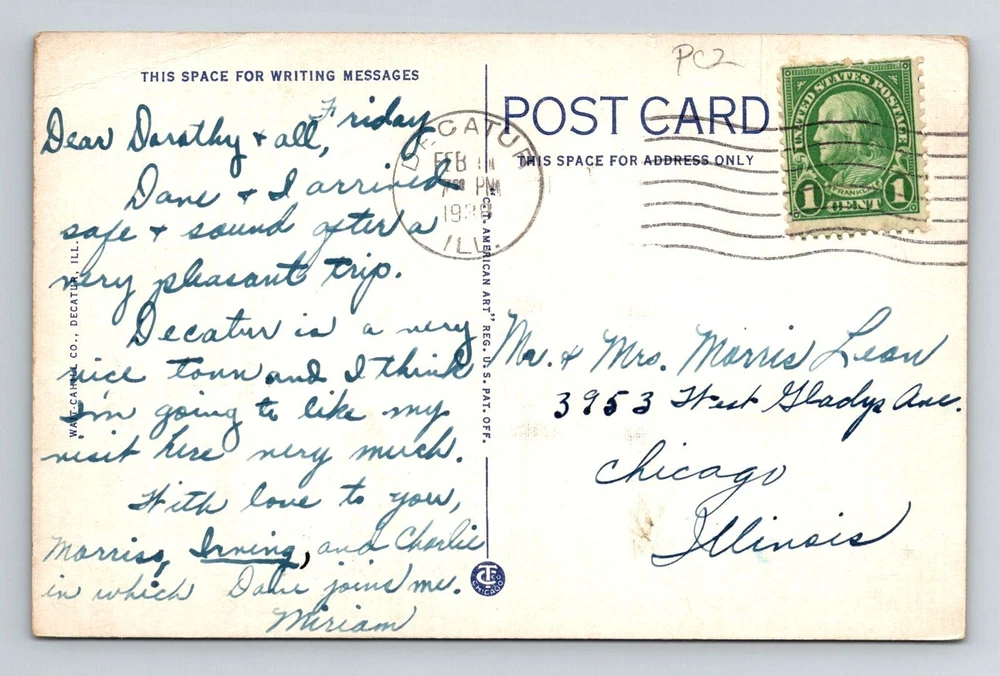 PC2
THIS SPACE FOR WRITING MESSAGES
Friday
Dear Dorothy & all,
Dave & I arrived
safe & sound after a
very pleasant trip.
Decatur is a very
nice town and I think
I'm going to like my
visit here very much.
With love to you,
Morriss, Irving, and Charlie
in which Dave joins me.
Miriam
CO., DECATUR, ILL.
"C.T. AMERICAN ART" REG. U.S. PAT. OFF.
CT CO
CHICAGO
POST CARD
THIS SPACE FOR ADDRESS ONLY
DECATUR
FEB
PM
ILL.
UNITED STATES POSTAGE
FRANKLIN
1 CENT 1
Mr. & Mrs. Morris Leon
3953 West Gladys Ave.
Chicago
Illinois